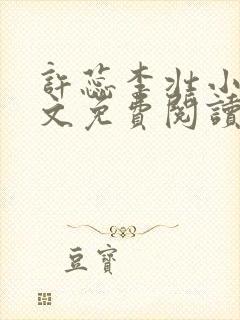 許蕊李壯小
文免費閱讀
豆寶